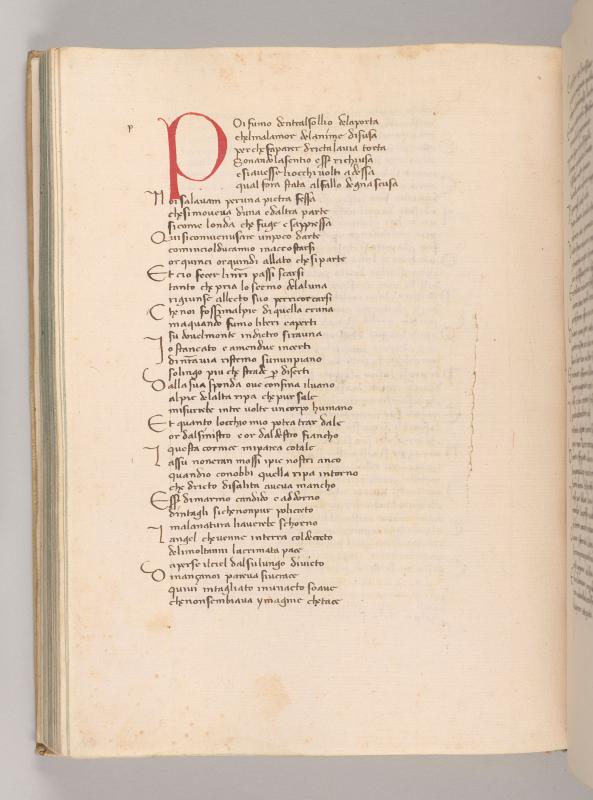 p
POi fumo dentralsollio delaporta
chelmalamor delanime disusa
per che faparer dricta lauia torta
Sonando la sentio esser richiusa
e si auesse li occhi volti adessa
qual fora stata al fallo degna scusa
Noi salauam per una pietra fessa
che si moueua duna e daltra parte
si come londa che fuge e sappressa
Qui si conuen usare un poco darte
comincio lducamio inaccostarsi
or quinci or quindi allato che si parte
Et cio fecer li nr̄i passi scarsi
tanto che pria lo scemo dela luna
rigiunse allecto suo per ricorcarsi
Che noi fossimalpie di quella cruna
ma quando fumo liberi e aperti
su doue lmonte indietro si rauna
Io stancato e amendue incerti
di nr̄a uia ristemo su nun piano
solingo piu che strade p diserti
Dalla sua sponda oue confina iluano
alpie delalta ripa che pur sale
misurrebe intre uolte un corpo humano
Et quanto locchio mio potea trar dale
or dal sinistro e or dal destro fiancho
questa cornice mi parea cotale
Iassu noneran mossi ipie nostri anco
quandio conobbi quella ripa intorno
che dricto disalita aueua mancho
Esser di marmo candido e addorno
dintagli si che non pur policreto
malanatura liauerebe schorno
Iangel che uenne in terra col decreto
delimoltanni lacrimata pace
caperse il ciel dal suo lungo diuieto
Dinançanoi pareua si uerace
quiui intagliato inun acto soaue
che non sembiaua ymagine che tace